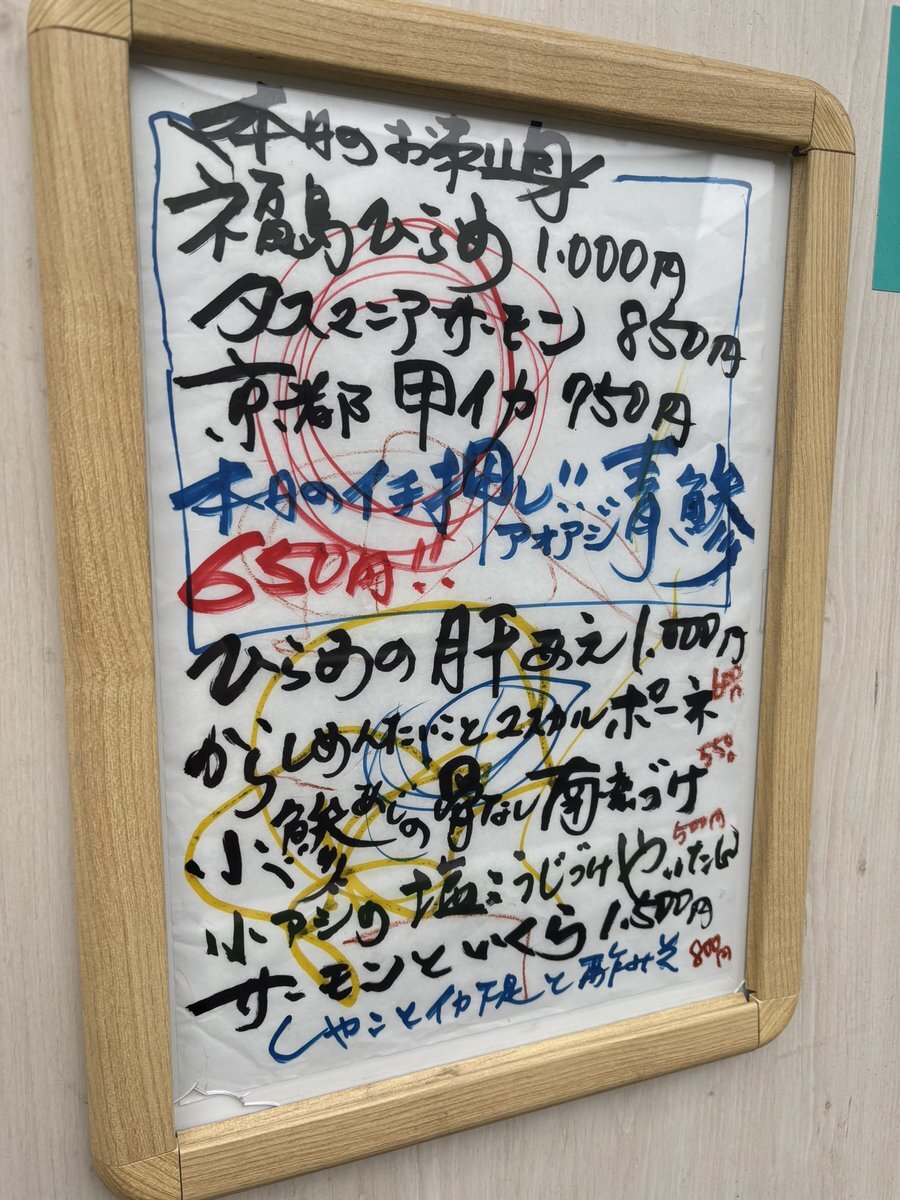 本日のお刺身
福島ひらめ 1.000円
タスマニアサーモン 850円
京都 甲イカ 750円
本日のイチ押し!!
アオアジ 青鯵
650円!!
ひらめの肝あえ 1.000円
からしめんたいことマスカルポーネ 600円
小鯵あじの骨なし南蛮づけ 550
小アジの塩こうじづけやいたの 500円
サーモンといくら 1.500円
しゃことイカ下足と酢みそ 800円